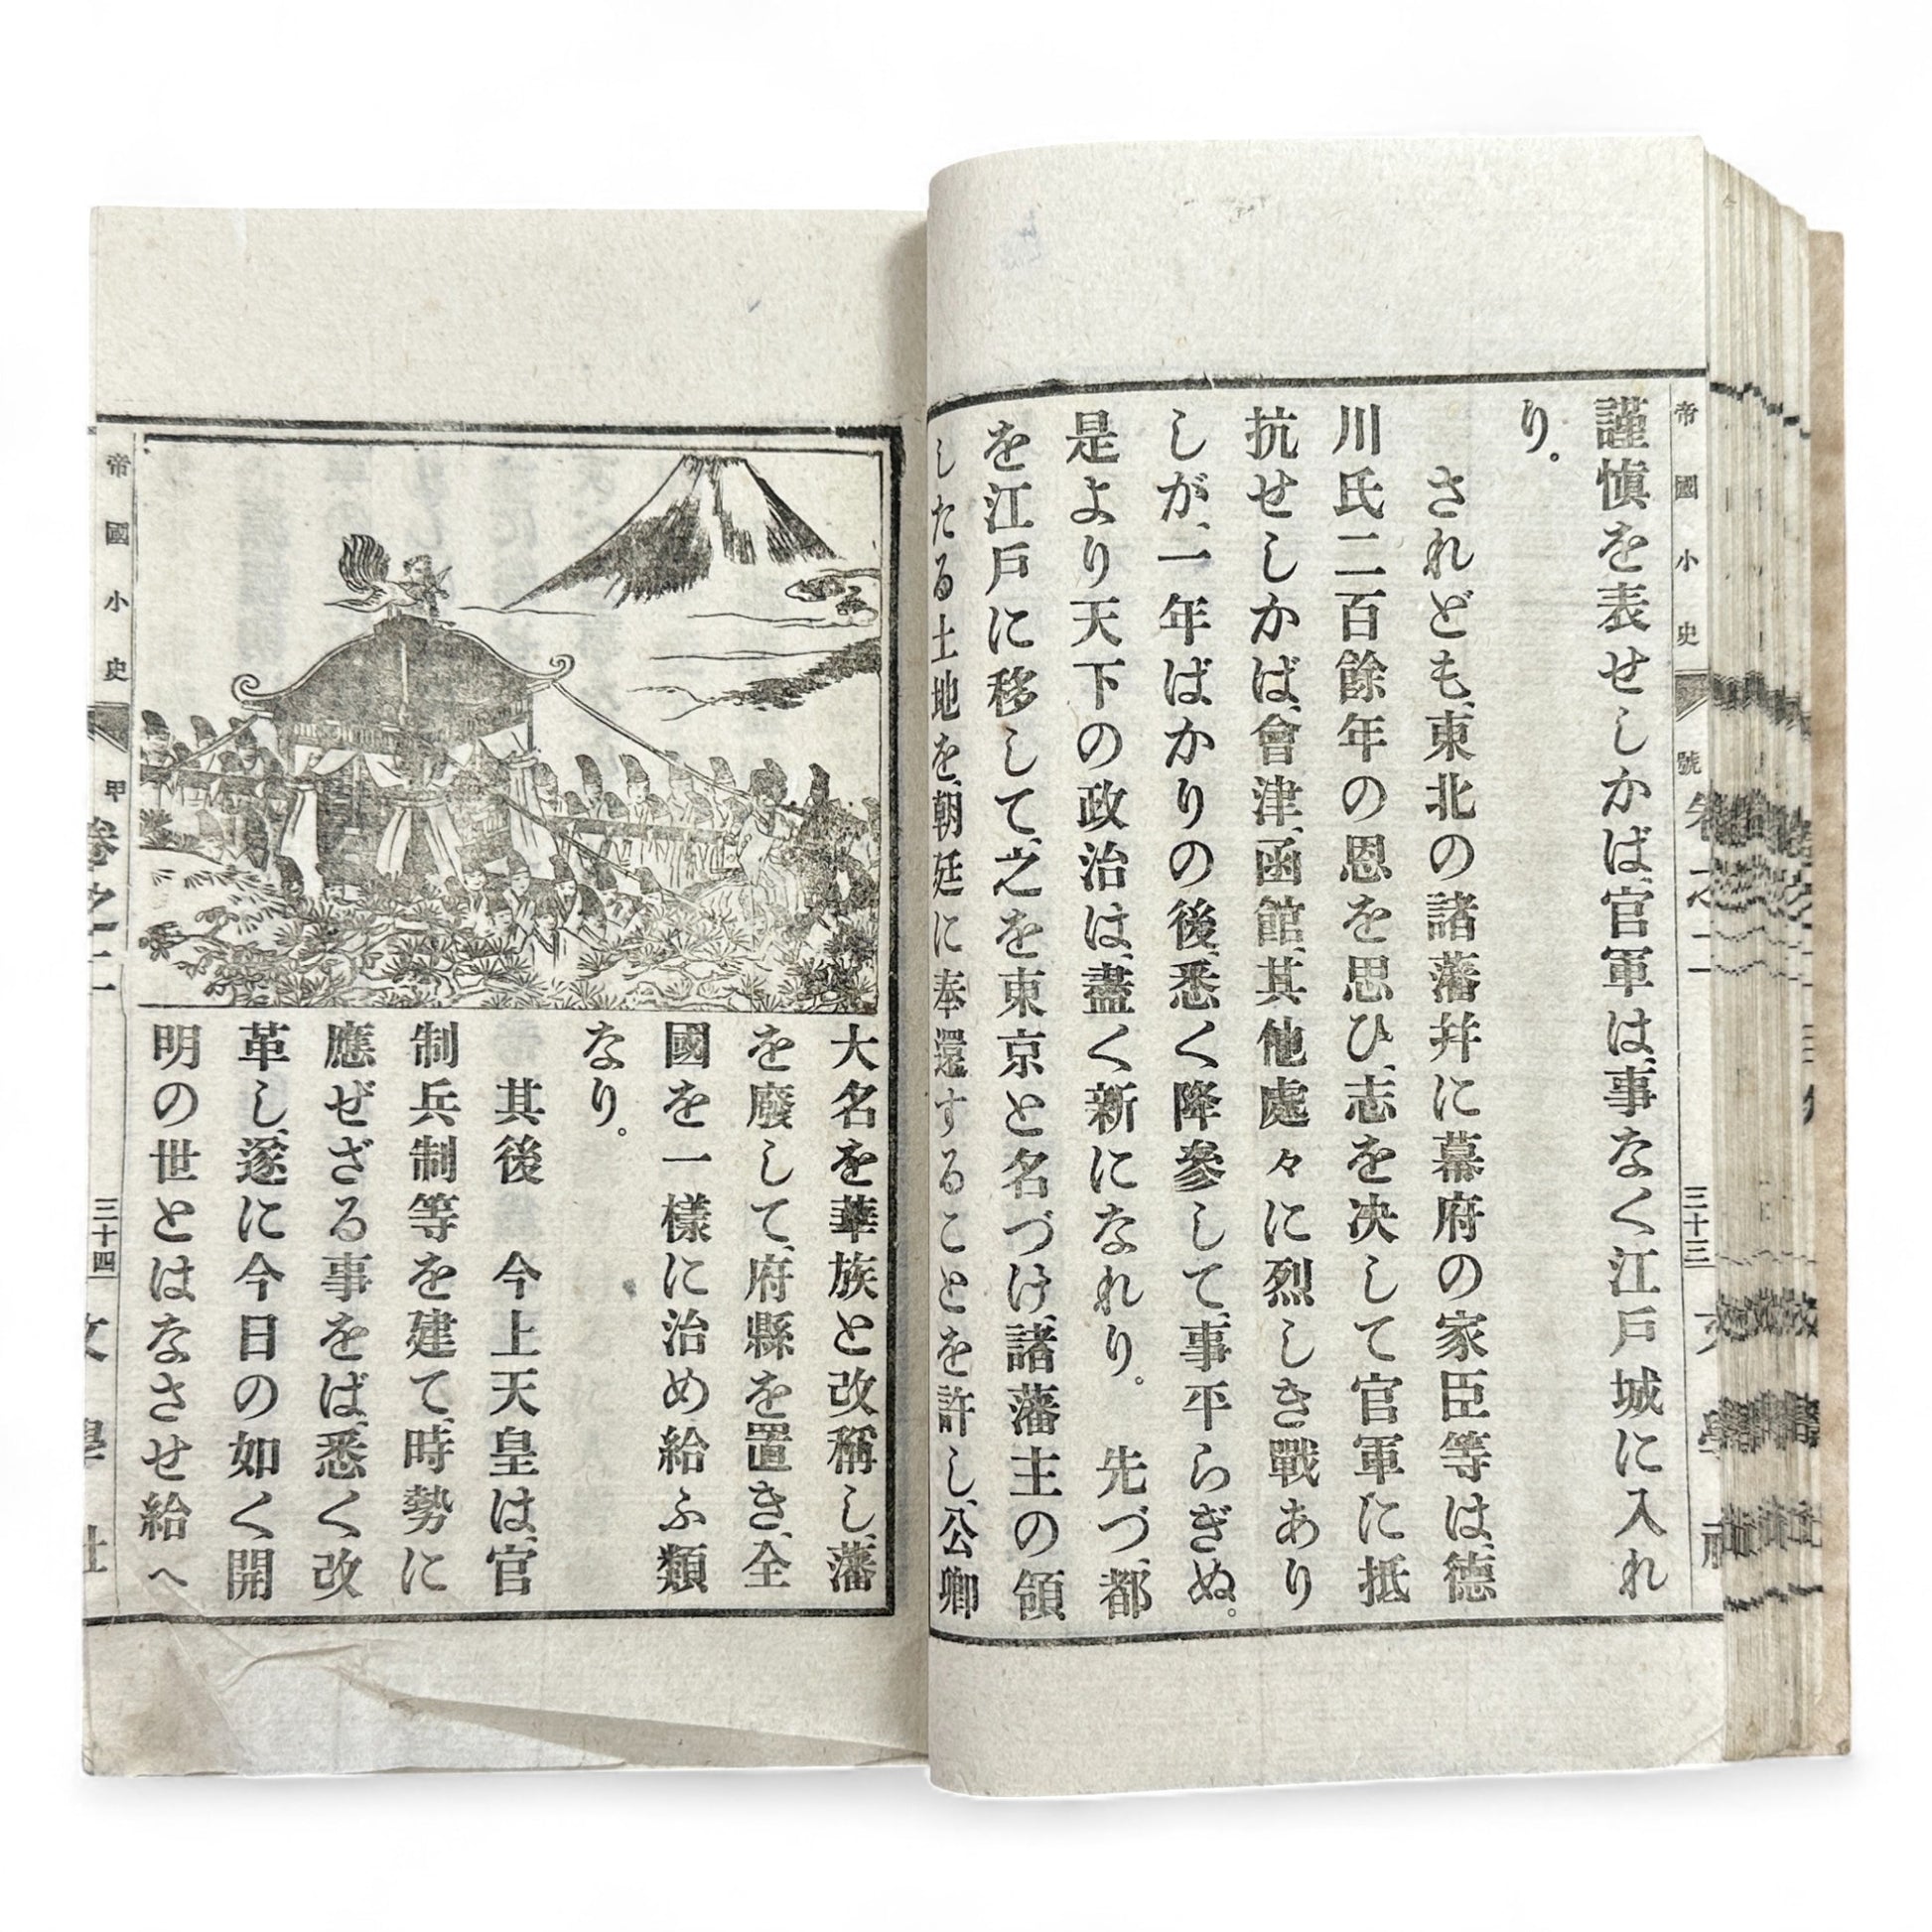 帝國小史 號 卷之二 三十三 文學社
謹慎を表せしかば、官軍は、事なく江戸城に入れ
り。
されども、東北の諸藩幷に幕府の家臣等は、德
川氏二百餘年の恩を思ひ、志を决して官軍に抵
抗せしかば、會津、函館、其他處々に烈しき戰あり
しが、一年ばかりの後、悉く降參して、事平らぎぬ。
是より天下の政治は、盡く新になれり。 先づ、都
を江戸に移して、之を東京と名づけ、諸藩主の領
したる土地を、朝廷に奉還することを許し、公卿
大名を華族と改稱し、藩
を廢して、府縣を置き、全
國を一樣に治め給ふ類
なり。
其後 今上天皇は、官
制兵制等を建て、時勢に
應ぜざる事をば、悉く改
革し、遂に今日の如く開
明の世とはなさせ給へ
帝國小史 甲 卷之二 三十四 文學社